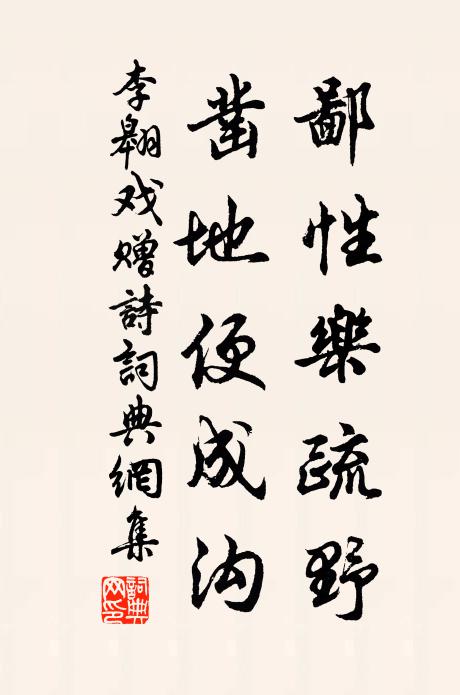 鄙性樂疏野
鑿地便成沟
李翱戏赠詩詞典網集
詞典网印